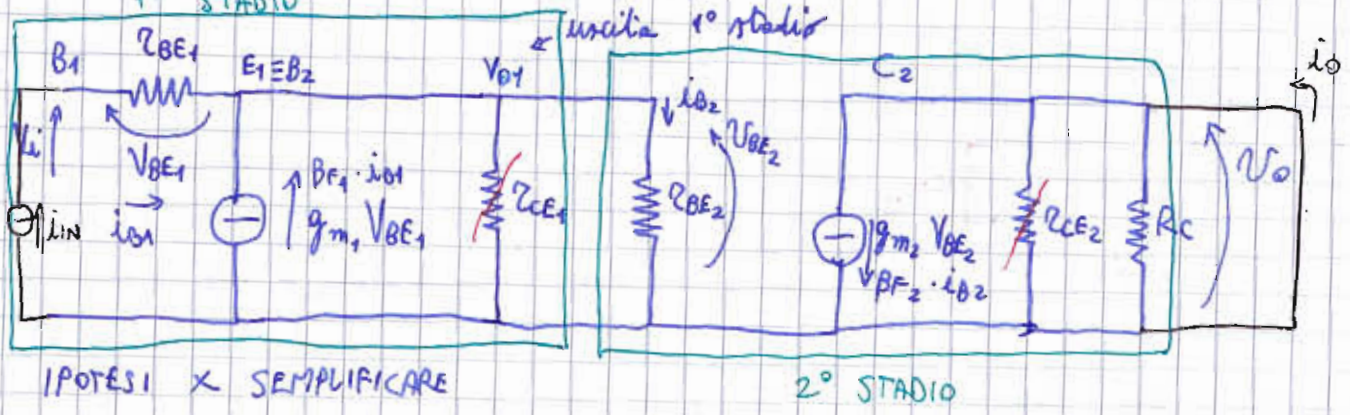 1° STADIO
uscita 1° stadio
B1
rBE1
E1≡B2
VO1
C2
iO
Vi
VBE1
iIN
iB1
BF1 · iB1
gm1 VBE1
rCE1
iB2
VBE2
rBE2
gm2 VBE2
βF2 · iB2
rCE2
RC
VO
IPOTESI X SEMPLIFICARE
2° STADIO